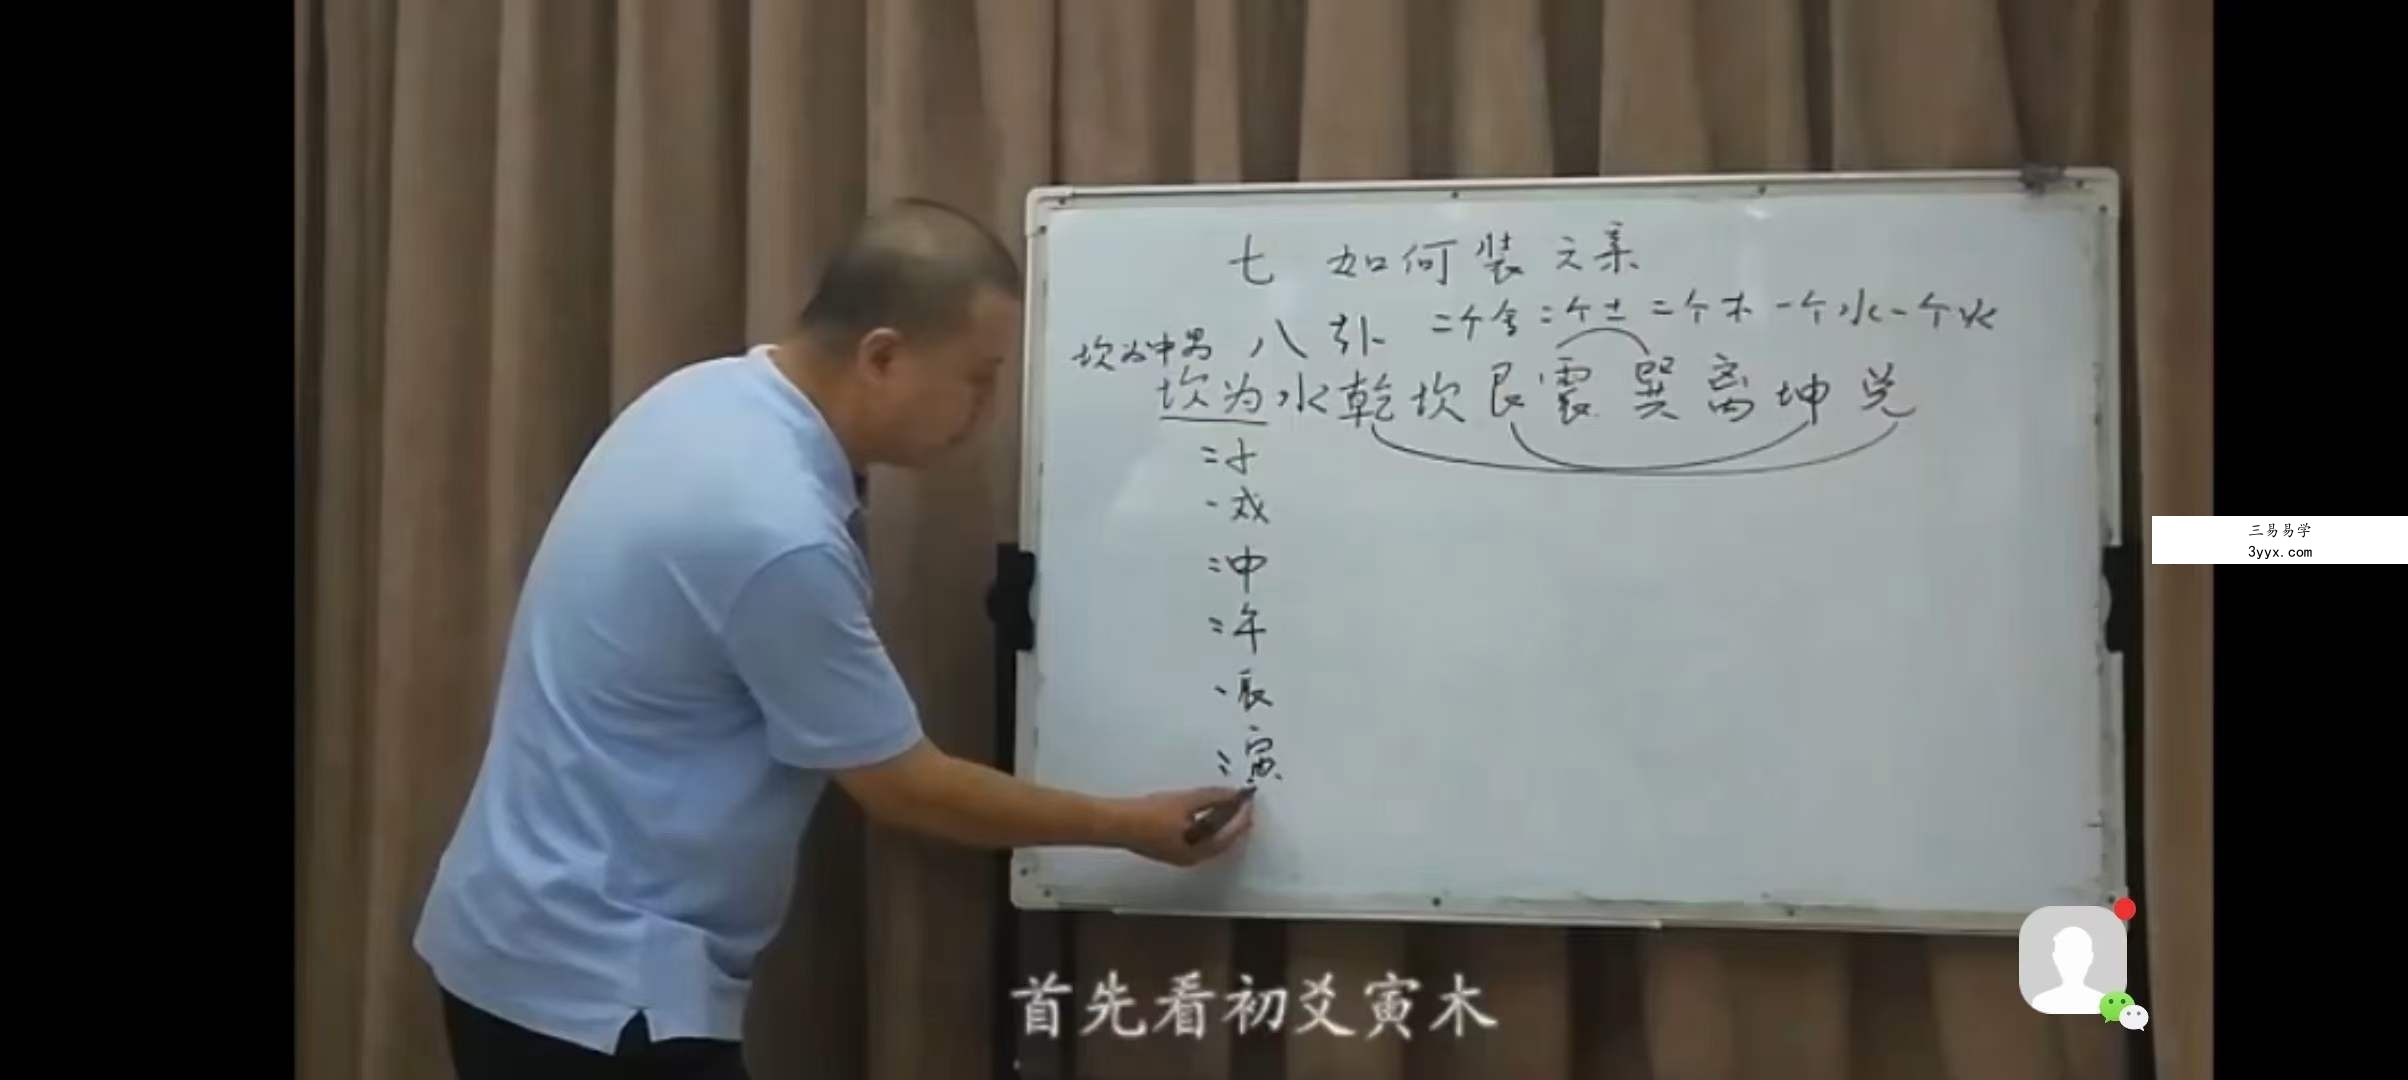 七 如何装六亲
八卦 二个金二个土二个木一个水一个火
坎为中男
坎为水乾坎艮震巽离坤兑
子
戌
申
午
辰
寅
三易易学
3yyx.com
首先看初爻寅木